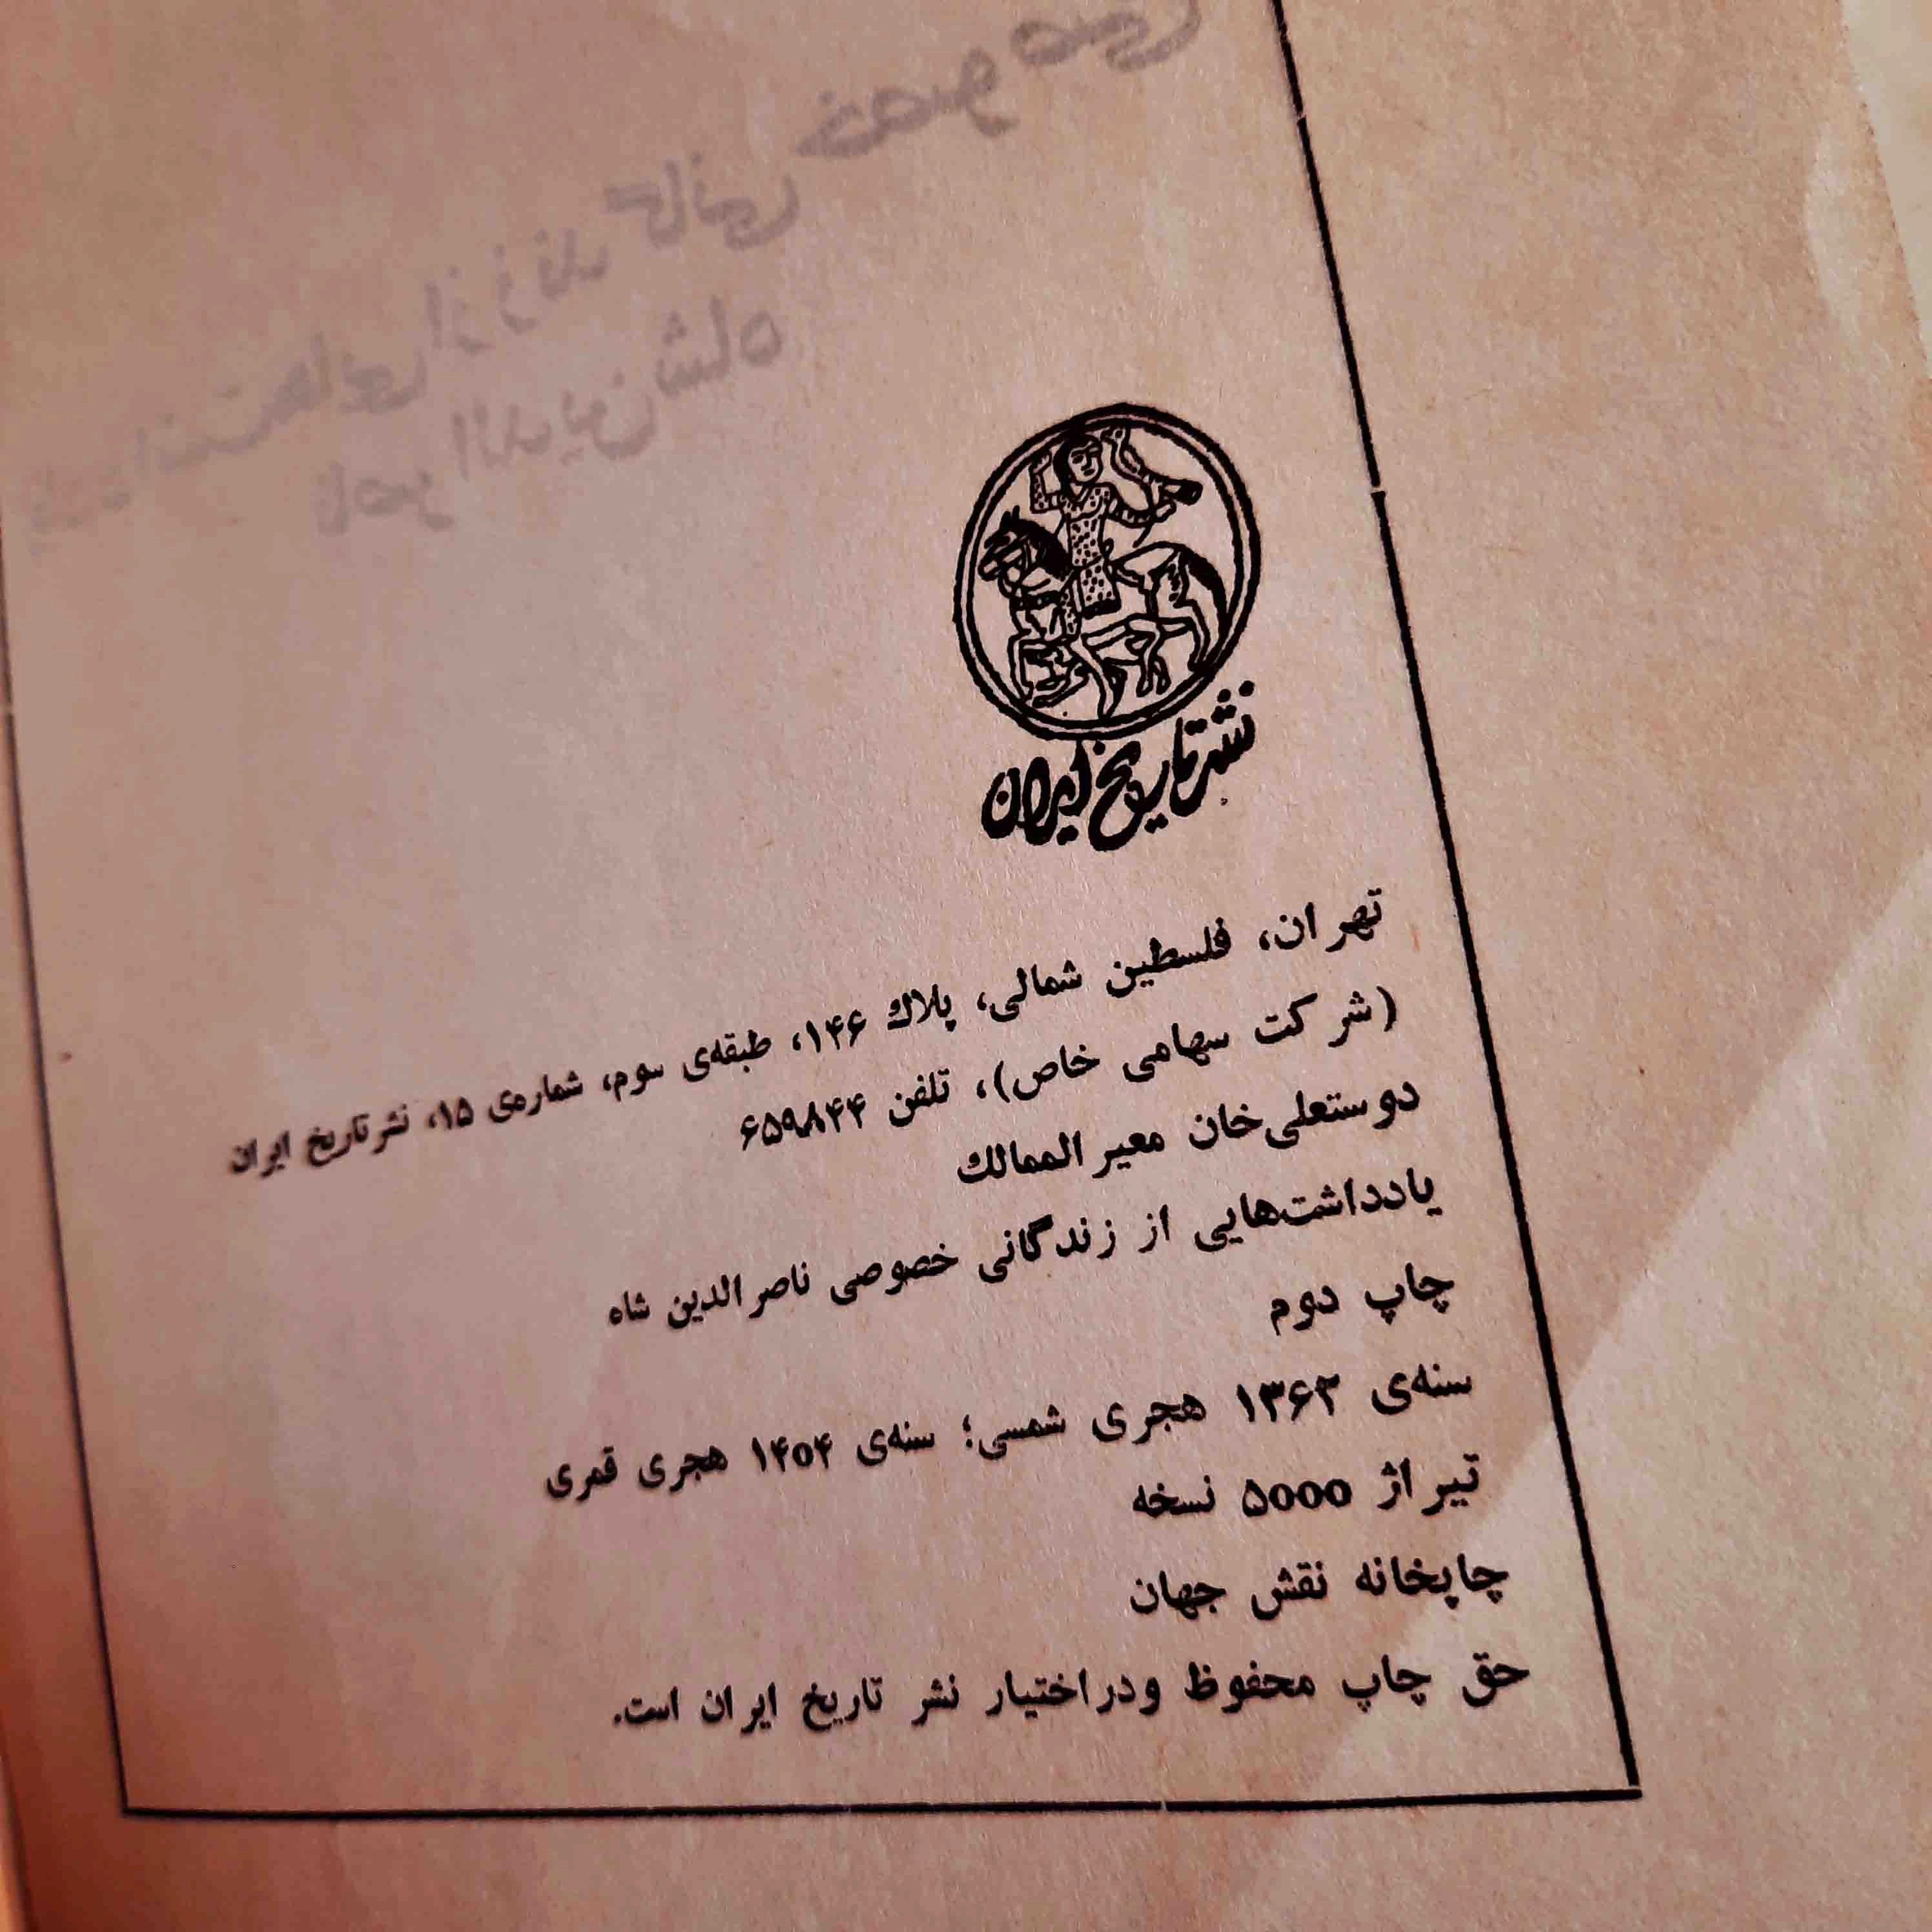 خصوصی
یادداشت‌هایی از زندگانی
ناصرالدین شاه
نشر تاریخ ایران
تهران، فلسطین شمالی، پلاك ۱۴۶، طبقه‌ی سوم، شماره‌ی ۱۵، نشر تاریخ ایران
(شرکت سهامی خاص)، تلفن ۶۵۹۸۴۴
دوستعلی‌خان معیرالممالك
یادداشت‌هایی از زندگانی خصوصی ناصرالدین شاه
چاپ دوم
سنه‌ی ۱۳۶۲ هجری شمسی؛ سنه‌ی ۱۴۰۴ هجری قمری
تیراژ ۵۰۰۰ نسخه
چاپخانه نقش جهان
حق چاپ محفوظ و در اختیار نشر تاریخ ایران است.